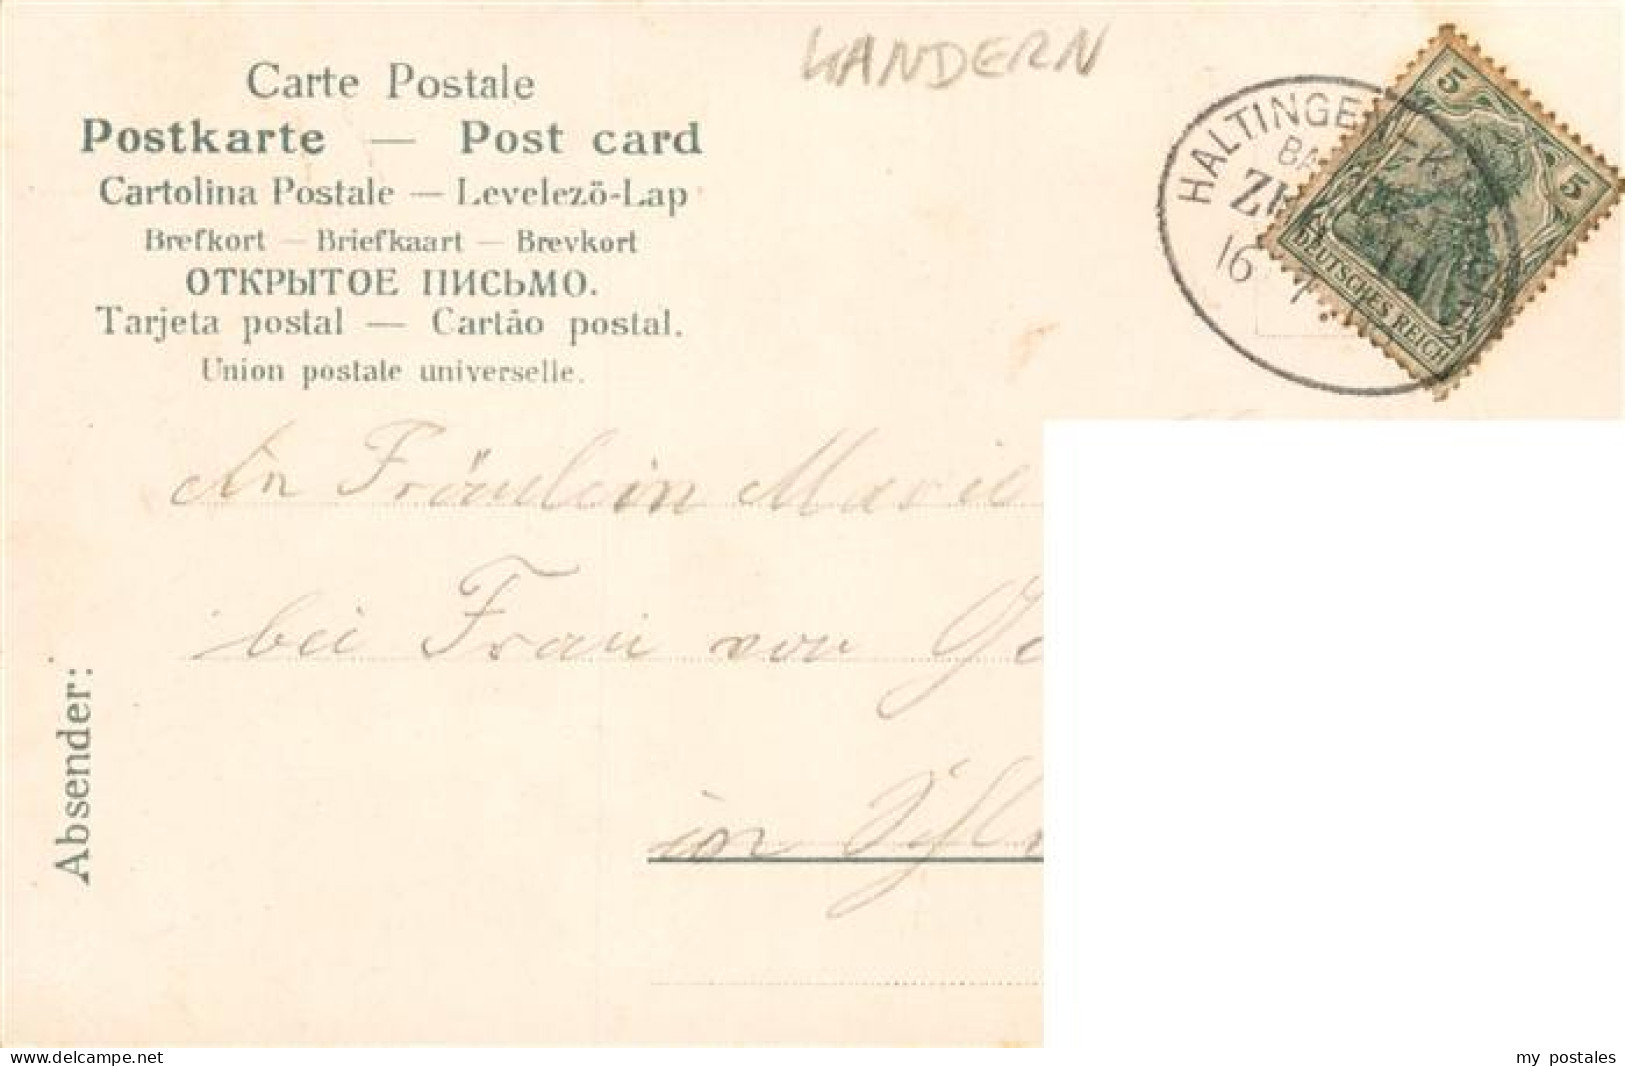 KANDERN
Carte Postale
Postkarte — Post card
Cartolina Postale — Levelező-Lap
Brefkort — Briefkaart — Brevkort
ОТКРЫТОЕ ПИСЬМО.
Tarjeta postal — Cartão postal.
Union postale universelle.
HALTINGE
BA
16
5
5
DEUTSCHES REICH
An Fräulein Marie
bei Frau von
in
Absender:
www.delcampe.net
my postales